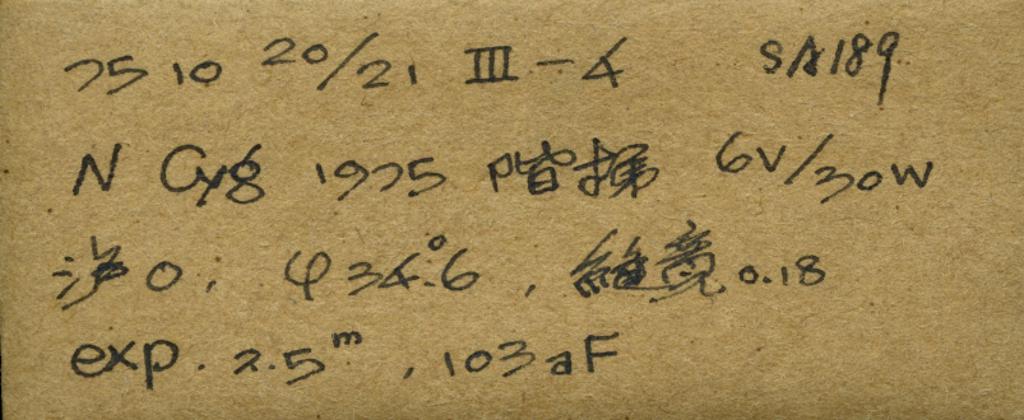 75 10 20/21 III-4 SA189
N Cyg 1975 階掃 6V/30W
0, φ34.°6, 0.18
exp. 2.5ᵐ, 103aF